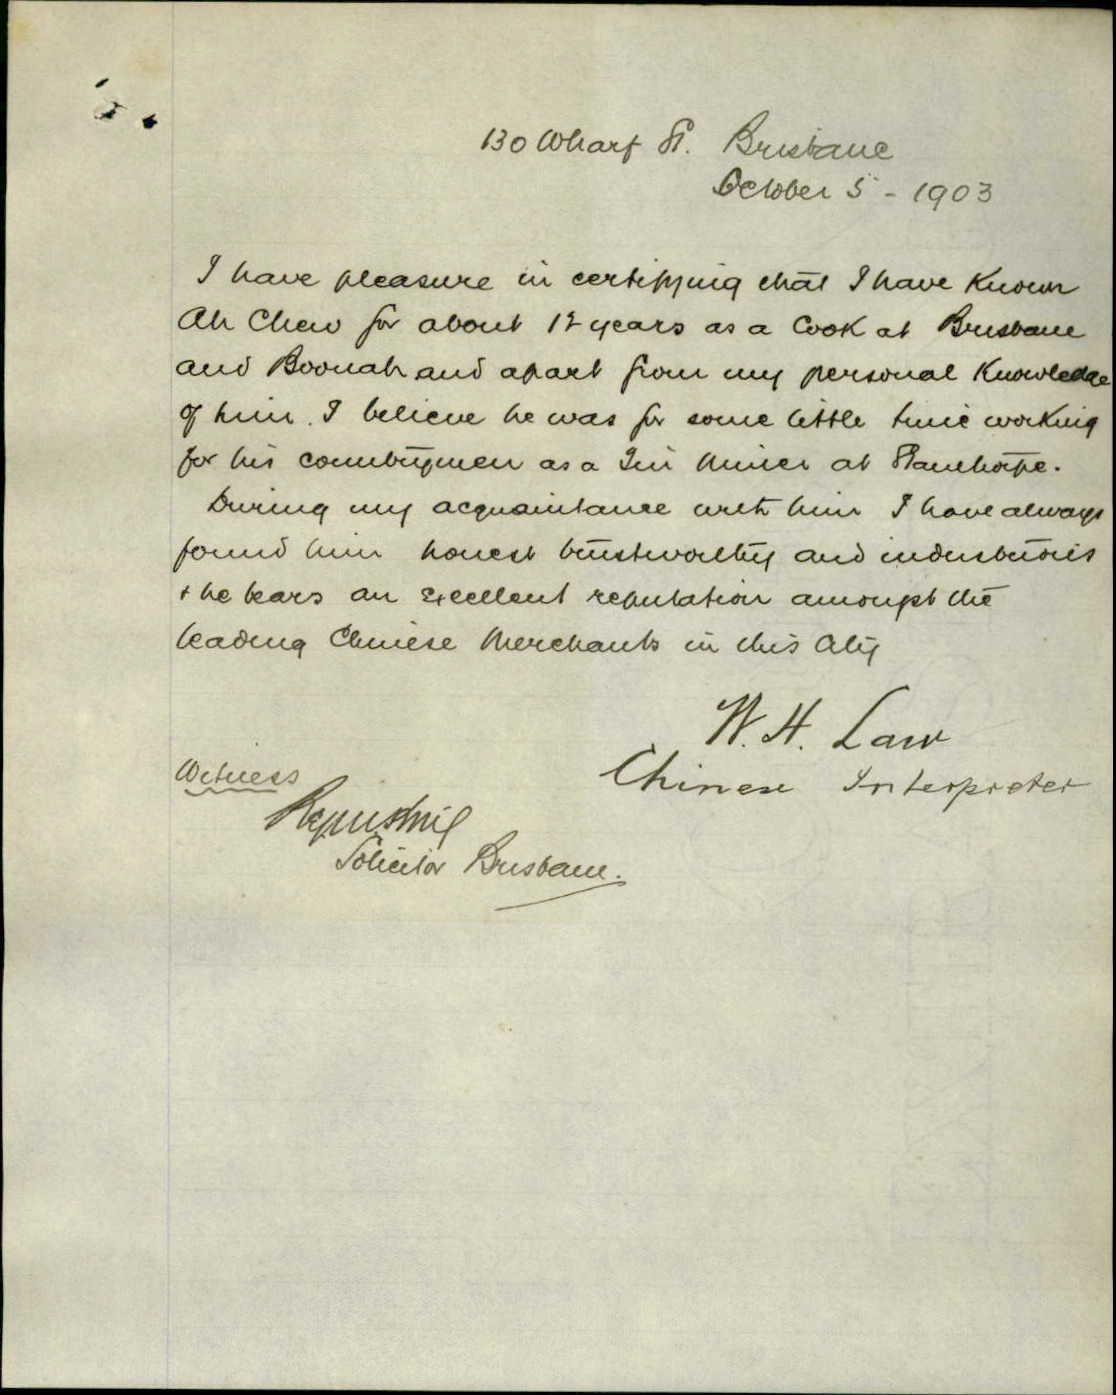 130 Wharf St. Brisbane
October 5 - 1903
I have pleasure in certifying that I have Known
Ah Chew for about 12 years as a Cook at Brisbane
and Boonah and apart from my personal Knowledge
of him. I believe he was for some little time working
for his countrymen as a Tin Miner at Stanthorpe.
During my acquaintance with him I have always
found him honest trustworthy and industrious
+ he bears an excellent reputation amongst the
leading Chinese Merchants in this City
W. H. Law
Chinese Interpreter
Witness
Solicitor Brisbane.